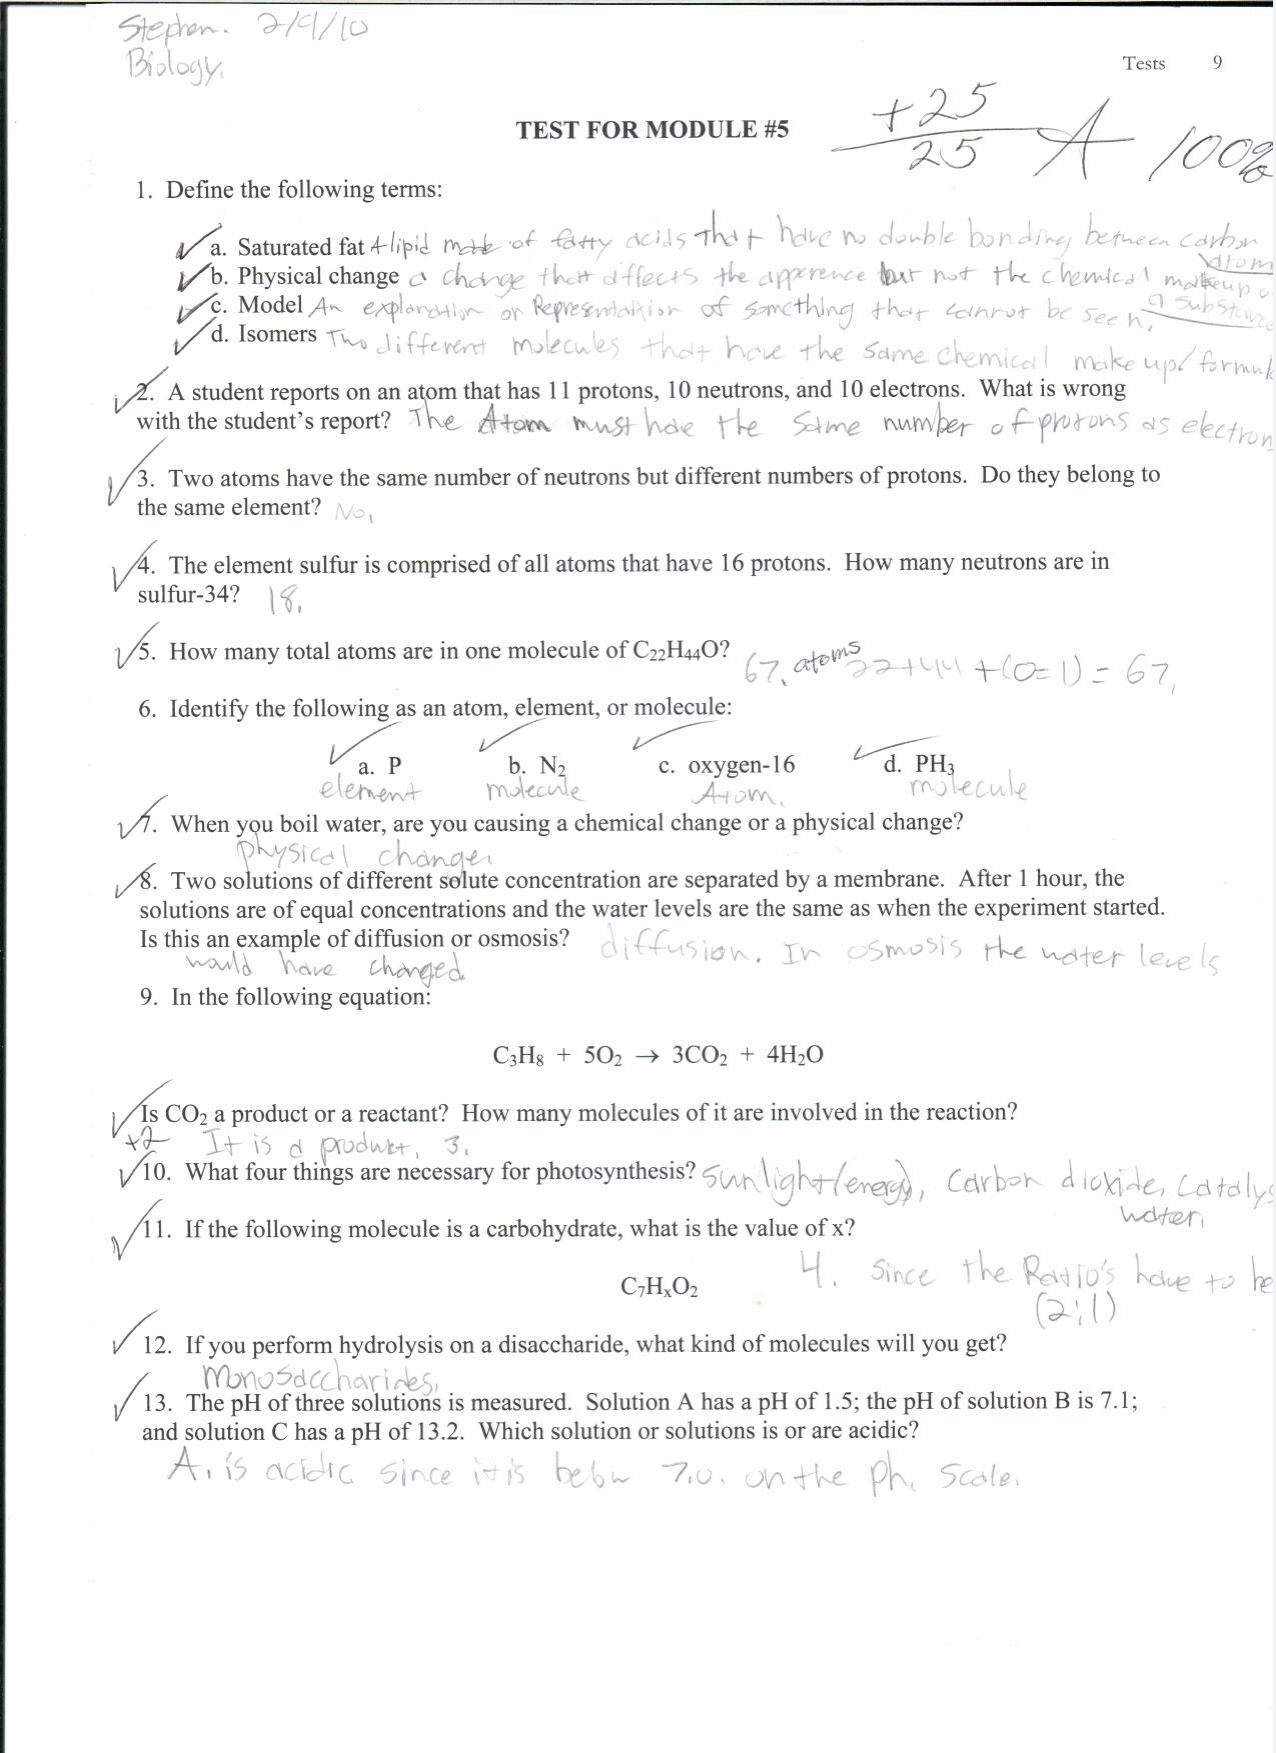 Stephen. 2/9/10
Biology.
Tests 9
TEST FOR MODULE #5
+25
25
A 100%
1. Define the following terms:
a. Saturated fat A lipid made of fatty acids that have no double bonding between carbon
atom
b. Physical change a change that affects the apperence but not the chemical makeup o
a substance
c. Model An explanation or Representaition of something that cannot be seen.
d. Isomers Two different molecules that have the same chemical make up/formul
2. A student reports on an atom that has 11 protons, 10 neutrons, and 10 electrons. What is wrong
with the student's report? The Atom must have the same number of protons as electron
3. Two atoms have the same number of neutrons but different numbers of protons. Do they belong to
the same element? No.
4. The element sulfur is comprised of all atoms that have 16 protons. How many neutrons are in
sulfur-34? 18.
5. How many total atoms are in one molecule of C₂₂H₄₄O? 67. atoms 22+44+(O=1)=67.
6. Identify the following as an atom, element, or molecule:
a. P b. N₂ c. oxygen-16 d. PH₃
element molecule Atom. molecule
7. When you boil water, are you causing a chemical change or a physical change?
physical change.
8. Two solutions of different solute concentration are separated by a membrane. After 1 hour, the
solutions are of equal concentrations and the water levels are the same as when the experiment started.
Is this an example of diffusion or osmosis? diffusion. In osmosis the water levels
would have changed.
9. In the following equation:
C₃H₈ + 5O₂ → 3CO₂ + 4H₂O
Is CO₂ a product or a reactant? How many molecules of it are involved in the reaction?
+2 It is a product. 3.
10. What four things are necessary for photosynthesis? Sunlight/(energy), Carbon dioxide, Catalys
water.
11. If the following molecule is a carbohydrate, what is the value of x?
C₇HₓO₂ 4. Since the Ratio's have to be
(2:1)
12. If you perform hydrolysis on a disaccharide, what kind of molecules will you get?
Monosaccharides.
13. The pH of three solutions is measured. Solution A has a pH of 1.5; the pH of solution B is 7.1;
and solution C has a pH of 13.2. Which solution or solutions is or are acidic?
A. is acidic since it is below 7.0. on the ph. scale.